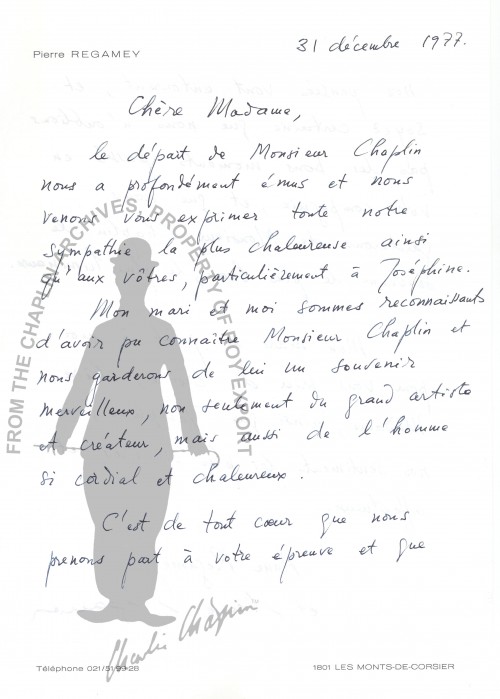 Pierre REGAMEY
31 décembre 1977.
Chère Madame,
le départ de Monsieur Chaplin
nous a profondément émus et nous
venons vous exprimer toute notre
sympathie la plus chaleureuse ainsi
qu'aux vôtres, particulièrement à Joséphine.
Mon mari et moi sommes reconnaissants
d'avoir pu connaitre Monsieur Chaplin et
nous garderons de lui un souvenir
merveilleux, non seulement du grand artiste
et créateur, mais aussi de l'homme
si cordial et chaleureux.
C'est de tout cœur que nous
prenons part à votre épreuve et que
FROM THE CHAPLIN ARCHIVES, PROPERTY OF ROY EXPORT
Charlie Chaplin
Téléphone 021/51 99 28
1801 LES MONTS-DE-CORSIER